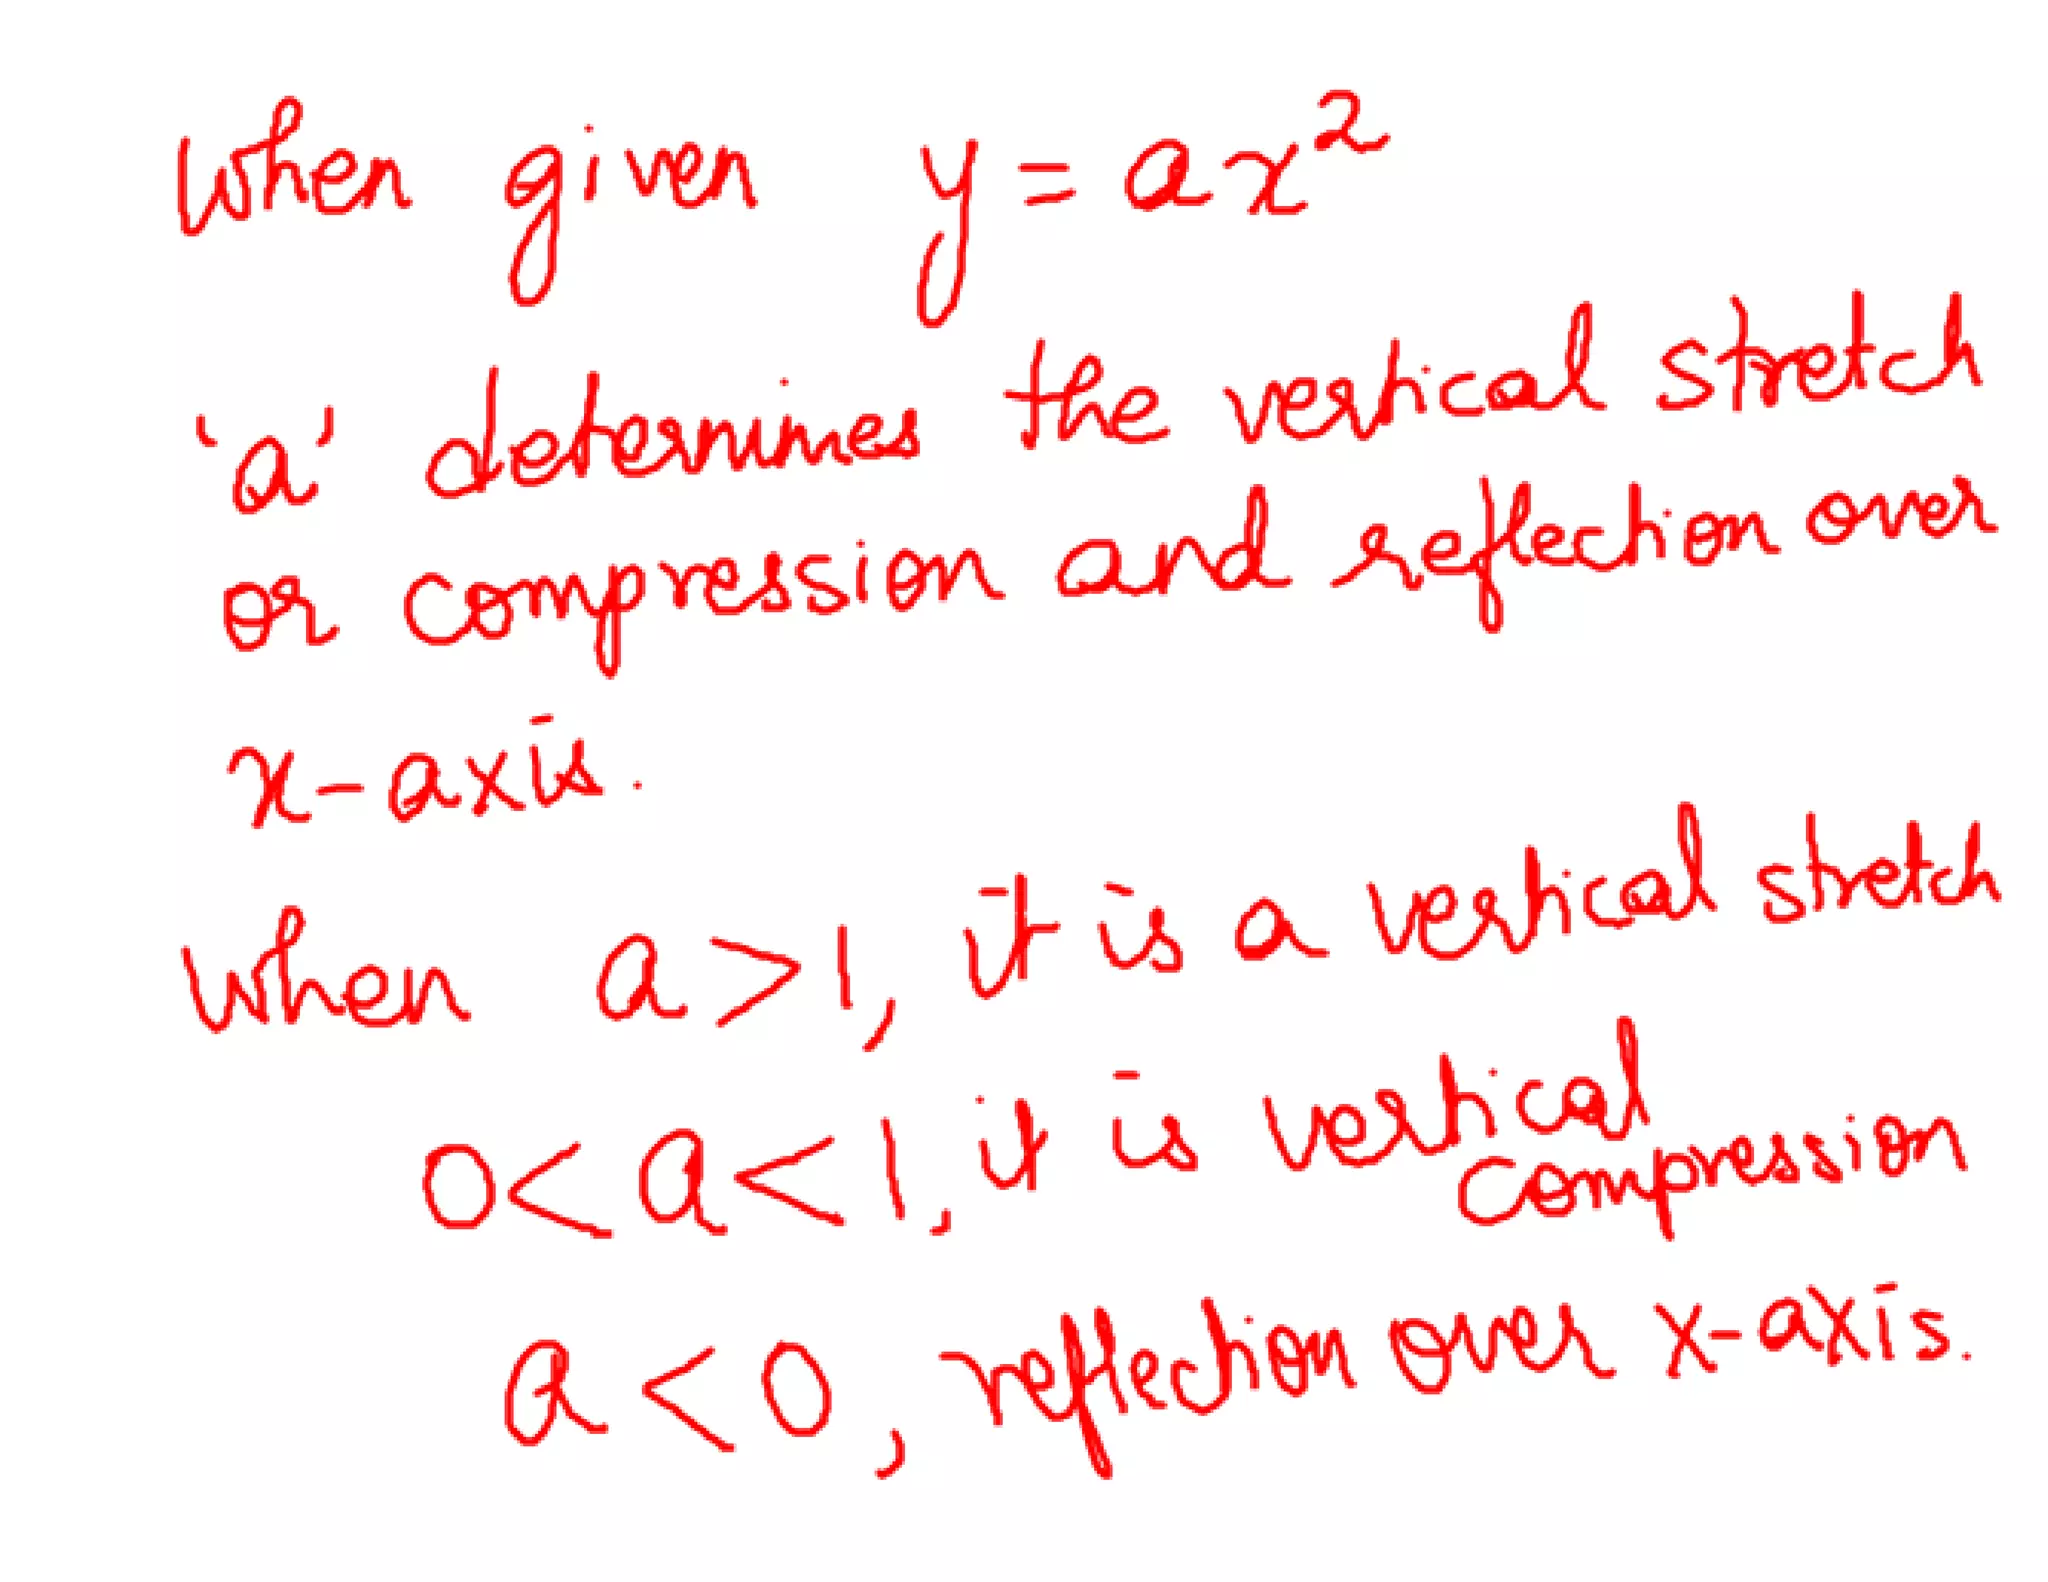 When given y = ax²
'a' determines the vertical stretch
or compression and reflection over
x-axis.
When a>1, it is a vertical stretch
0<a<1, it is vertical
compression
a<0, reflection over x-axis.